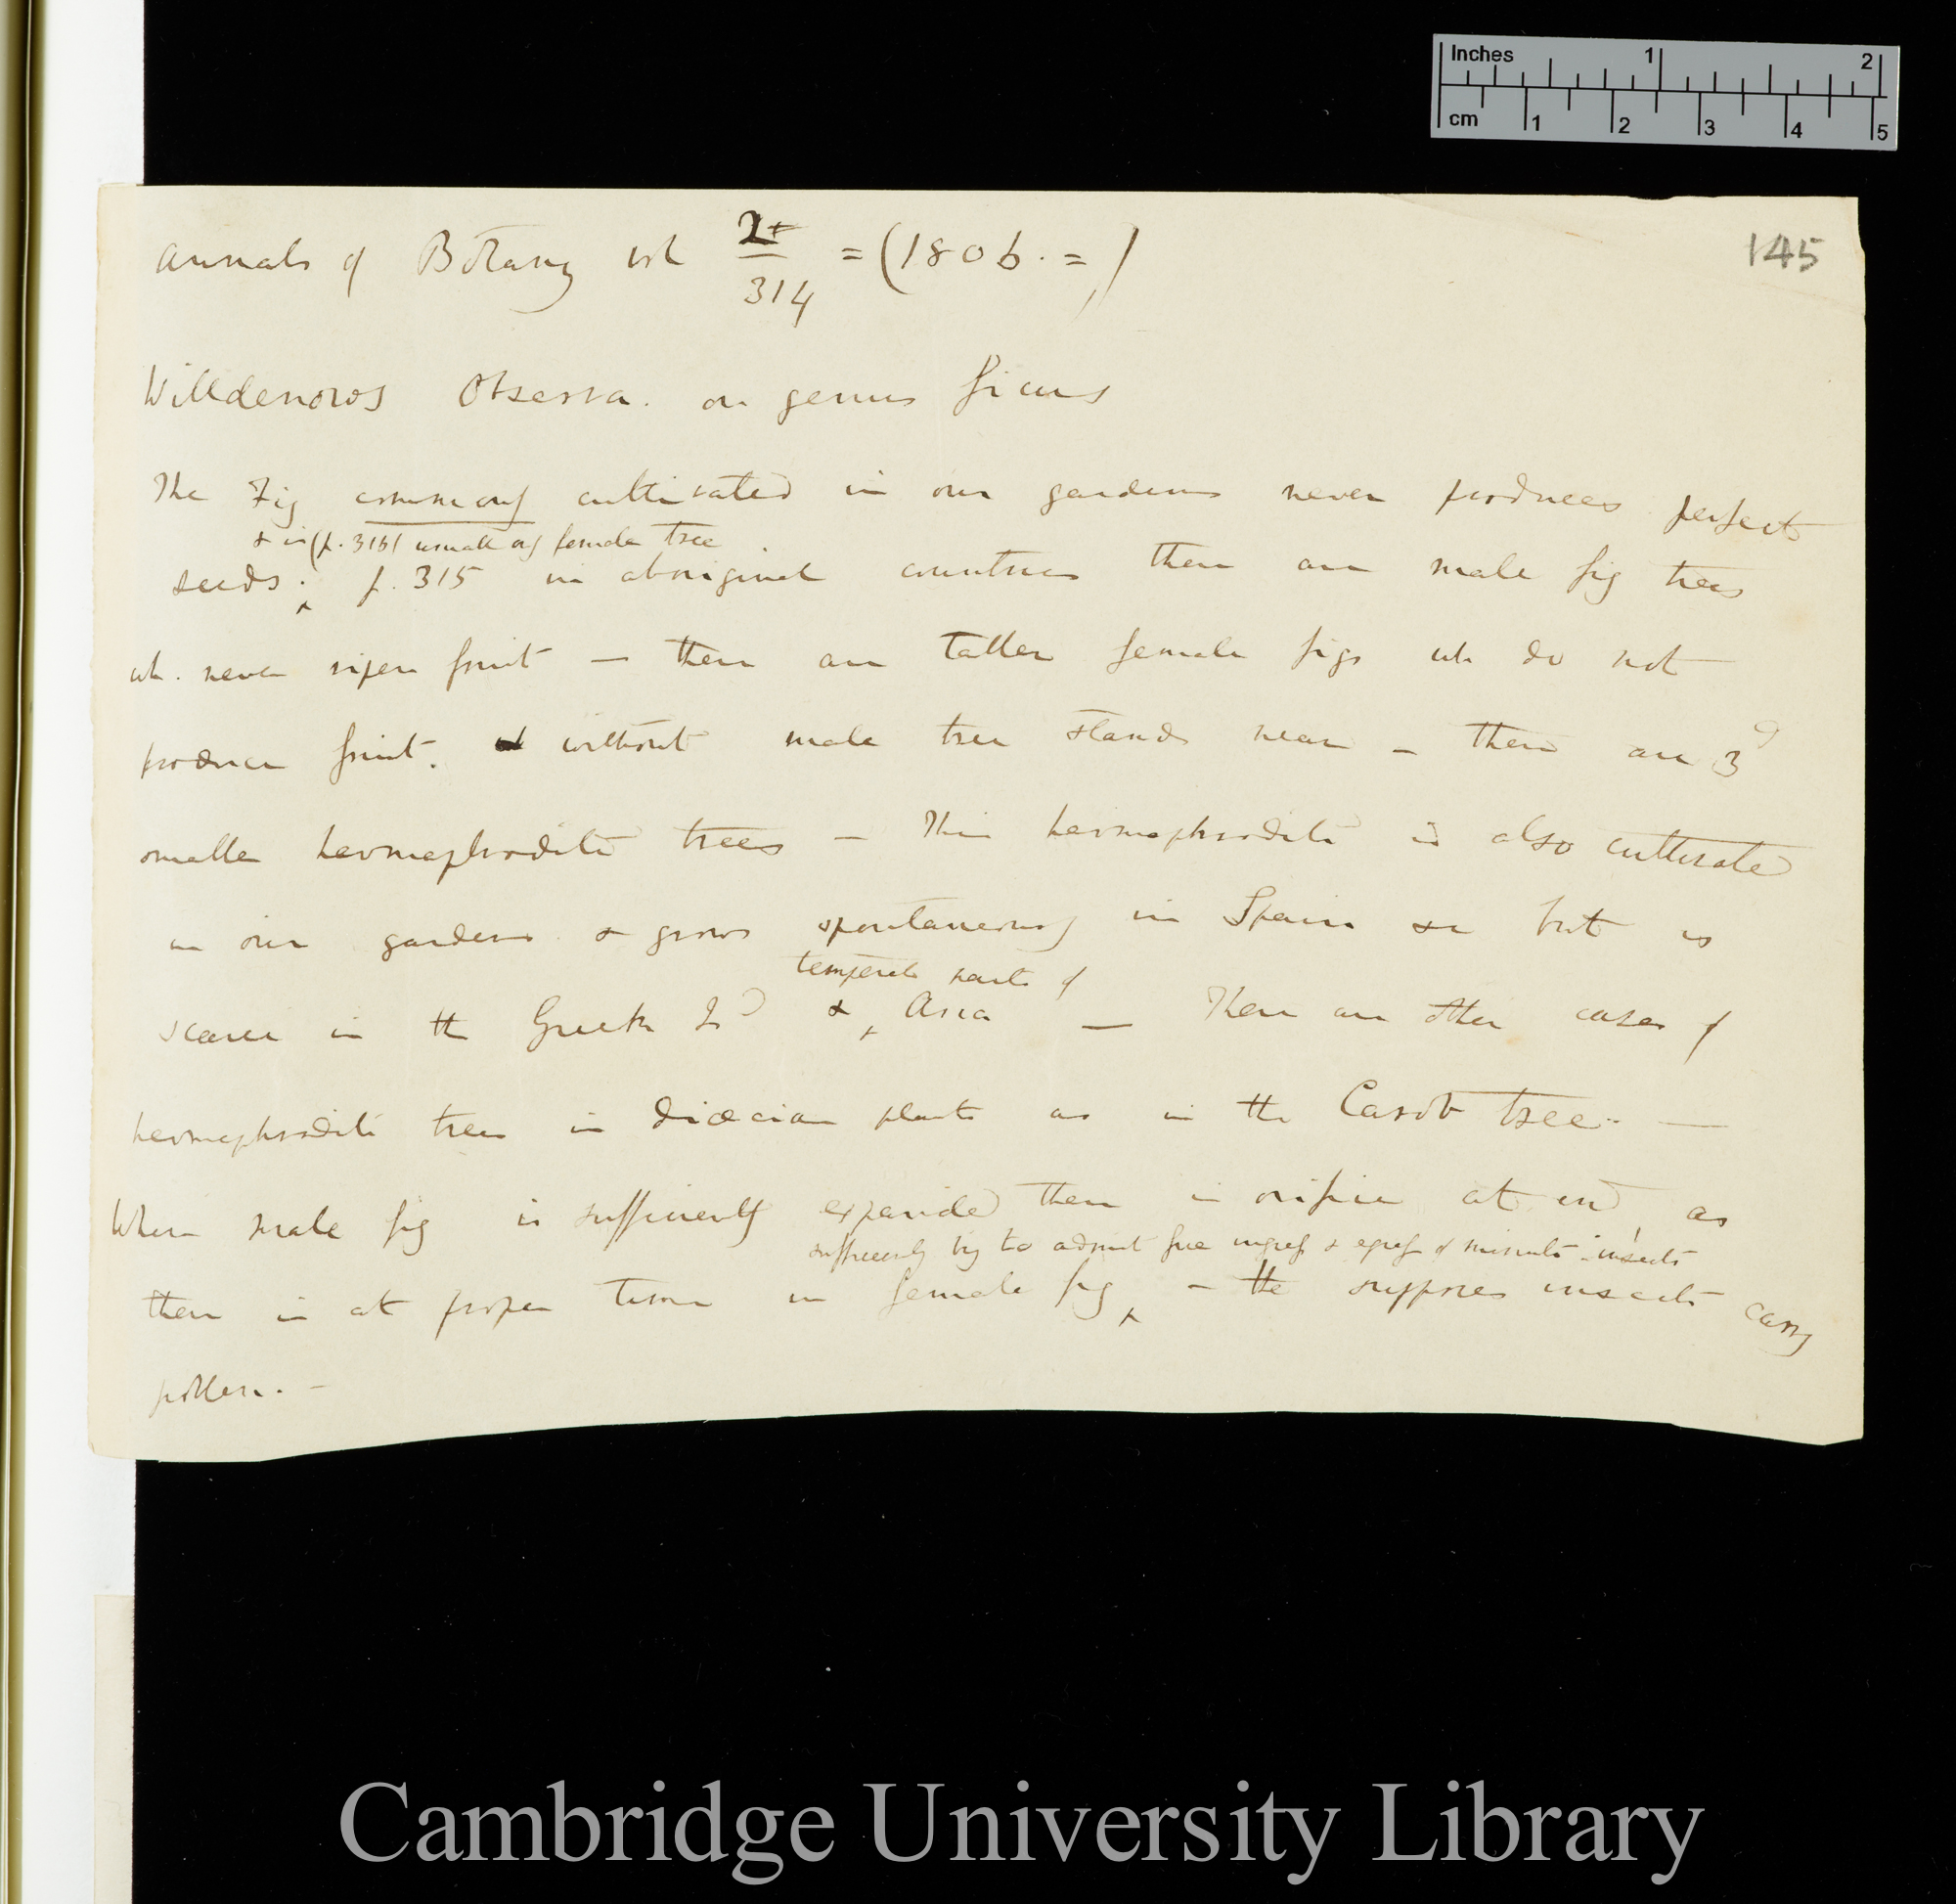 Inches 1 2
cm 1 2 3 4 5
145
Annals of Botany vol 2 / 314 = (1806. =)
Willdenows Observa. on genus ficus
The Fig commonly cultivated in our gardens never produces perfect
& is (p. 316) usually female tree
seeds; p. 315 in aboriginal countries there are male fig trees
wh. never ripen fruit — there are taller female figs wh do not
produce fruit. without male tree stands near — there are 3d
smaller hermaphrodite trees — This hermaphrodite is also cultivated
in our gardens & grows spontaneously in Spain &c but is
temperate parts of
scarce in the Greek Id & Asia — There are other cases of
hermaphrodite trees in diœcian plants as in the Carob tree. —
When male fig is sufficiently expanded there is orifice at end, as
sufficiently big to admit free ingress & egress of minute insects
there is at proper time in female fig — He supposes insects carry
pollen. —
Cambridge University Library